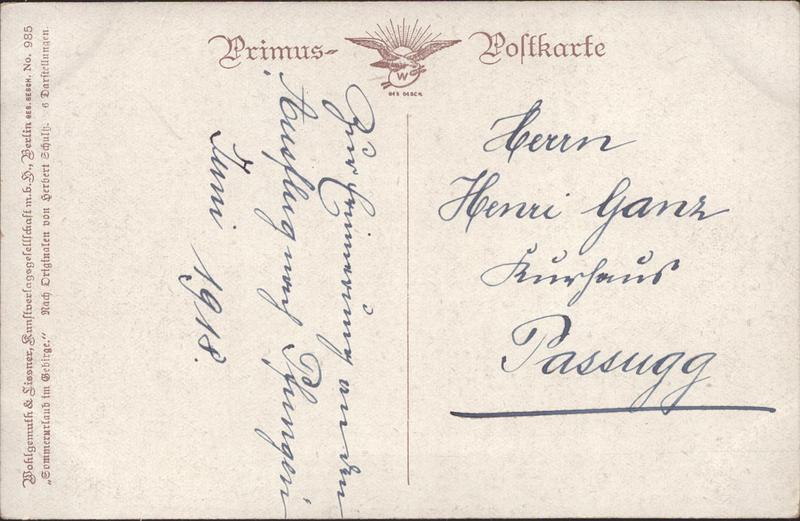 Primus-
Postkarte
W
GES. GESCH.
Zur Erinnerung an den
Ausflug nach Pfungen
Juni 1918.
Herrn
Henri Ganz
Kurhaus
Passugg
Wohlgemuth & Lissner, Kunstverlagsgesellschaft m.b.H., Berlin GES. GESCH. No. 985
„Sommerurlaub im Gebirge.“ Nach Originalen von Herbert Schultz. 6 Darstellungen.